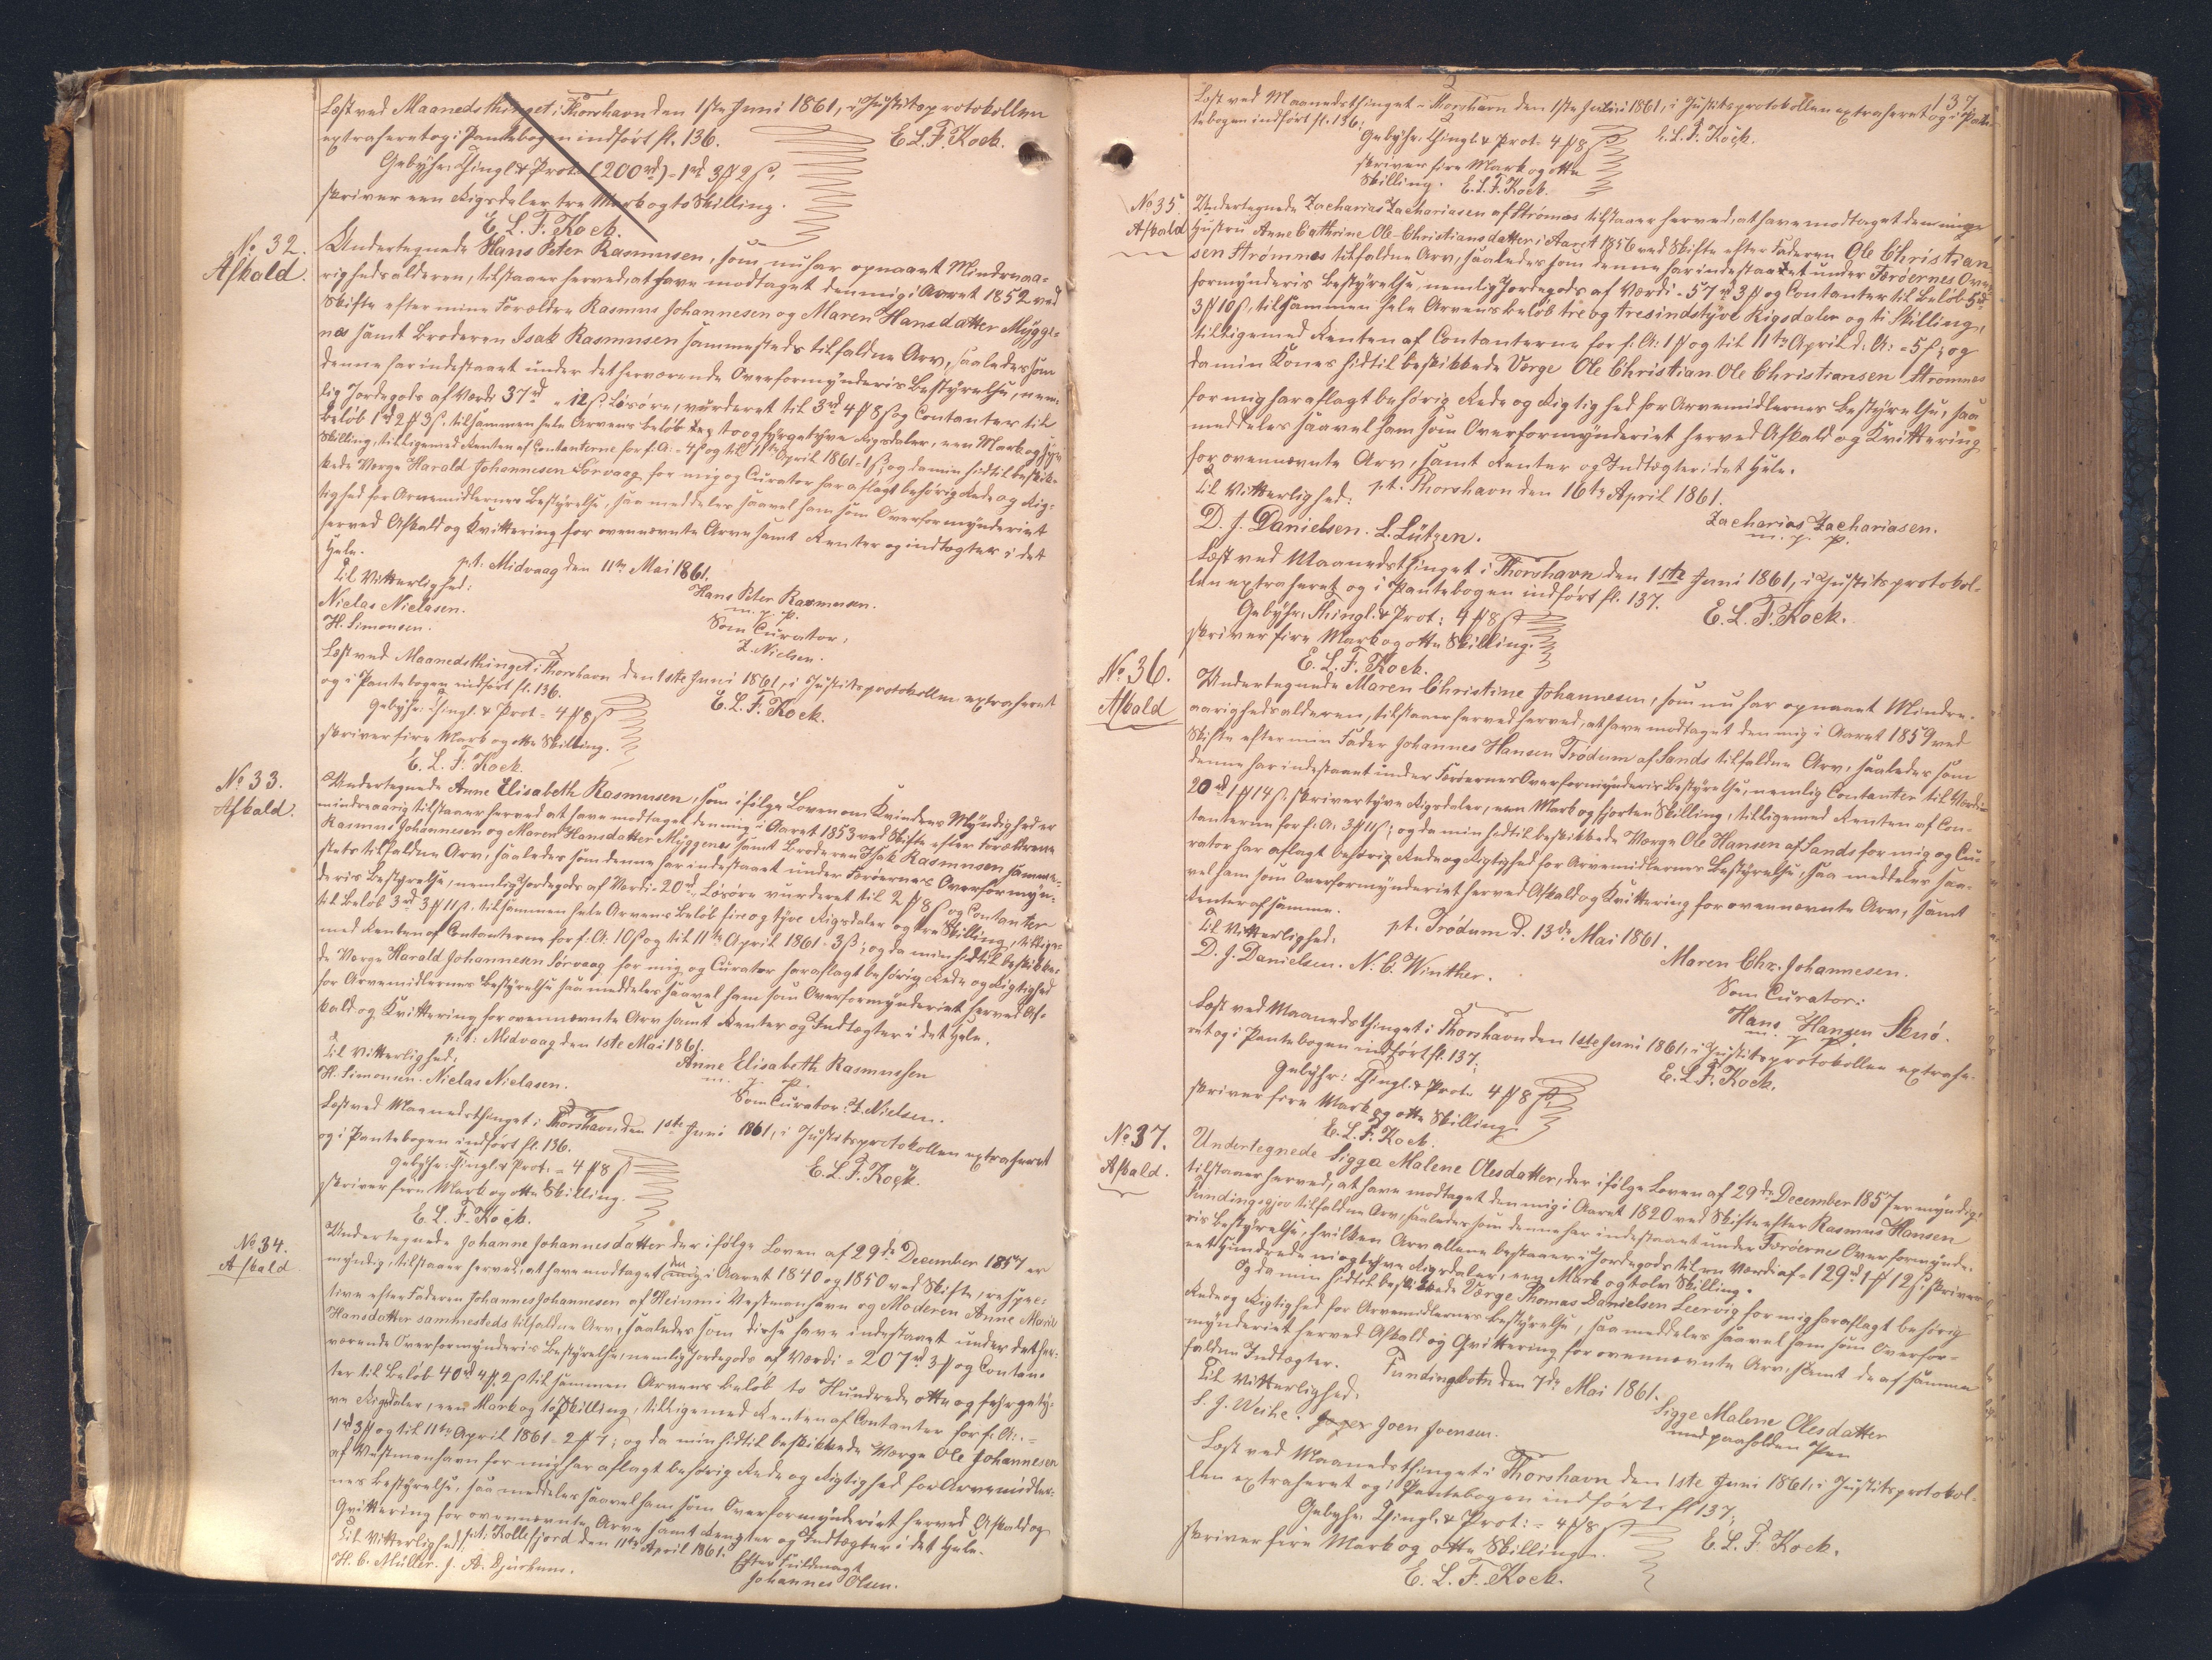 Læst ved Maanedsthinget i Thorshavn den 1ste Juni 1861, i Justitsprotokollen
extraheret og i Pantebogen indført fl. 136.
E. L. F. Kock.
Gebyhr: Thingl. & Prot. (200 rd) = 1 rd 3 ℳ 2 ß,
skriver een Rigsdaler tre Mark og to Skilling.
E. L. F. Kock.
No 32.
Afkald.
Undertegnede Hans Peter Rasmussen, som nu har opnaaet Mindreaa-
righedsalderen, tilstaaer herved, at have modtaget den mig i Aaret 1852 ved
Skifte efter mine Forældre Rasmus Johannesen og Maren Hansdatter Mygge-
næs samt Broderen Isak Rasmussen sammesteds tilfaldne Arv, saaledes som
denne har indestaaet under det herværende Overformynderies Bestyrelse, nem-
lig Jordegods af Værdi 37 rd " 12 ß. Løsøre, vurderet til 3 rd 4 ℳ 8 ß og Contanter til
Beløb 1 rd 2 ℳ 3 ß. tilsammen hele Arvens Beløb to og fyrgetyve Rigsdaler, een Mark og syv
Skilling, tilligemed Renten af Contanterne for f. A. = 4 ß og til 11te April 1861 = 1 ß; og da min hidtil beskik-
kede Værge Harald Johannesen Sørvaag for mig og Curator har aflagt behørig Rede og Rig-
tighed for Arvemidlernes Bestyrelse, saa meddeles saavel ham som Overformynderiet
herved Afkald og Kvittering for ovennævnte Arv samt Renter og indtægter i det
Hele.
pt. Midvaag den 11te Mai 1861.
Til Vitterlighed:
Hans Peter Rasmussen.
m. p. p.
Niclas Niclasen.
Som Curator,
H. Simonsen.
Z. Nielsen.
Læst ved Maanedsthinget i Thorshavn den 1ste Juni 1861, i Justitsprotokollen extraheret
og i Pantebogen indført fl. 136.
E. L. F. Kock.
Gebyhr: Thingl. & Prot = 4 ℳ 8 ß
skriver fire Mark og otte Skilling.
E. L. F. Kock.
No 33.
Afkald.
Undertegnede Anne Elisabeth Rasmussen, som ifølge Loven om Kvinders Myndighed er
mindreaarig tilstaaer herved at have modtaget den mig i Aaret 1853 ved Skifte efter Forældrene
Rasmus Johannesen og Maren Hansdatter Myggenes samt Broderen Isak Rasmussen samme-
steds tilfaldne Arv, saaledes som denne har indestaaet under Færøernes Overformyn-
deries Bestyrelse, nemlig Jordegods af Værdi = 20 rd, Løsøre vurderet til 2 ℳ 8 ß og Contanter
til Beløb 3 rd 3 ℳ 11 ß. tilsammen hele Arvens Beløb fire og tyve Rigsdaler og tre Skilling, tillige-
med Renten af Contanterne for f. A: 10 ß og til 11te April 1861 = 3 ß; og da min hidtil beskikke-
de Værge Harald Johannesen Sørvaag for mig og Curator har aflagt behørig Rede og Rigtighed
for Arvemidlernes Bestyrelse saa meddeles saavel ham som Overformynderiet herved Af-
kald og Kvittering for ovennævnte Arv samt Renter og Indtægter i det Hele.
p: t: Midvaag den 1ste Mai 1861.
Til Vitterlighed,
Anne Elisabeth Rasmussen
m. p. p.
H. Simonsen. Niclas Niclasen.
Som Curator: Z. Nielsen.
Læst ved Maanedsthinget i Thorshavn den 1ste Juni 1861, i Justitsprotokollen extraheret
og i Pantebogen indført fl. 136.
E. L. F. Kock.
Gebyhr: Thingl. & Prot: = 4 ℳ 8 ß
skriver fire Mark og otte Skilling.
E. L. F. Kock.
No 34.
Afkald.
Undertegnede Johanne Johannesdatter der ifølge Loven af 29de December 1857 er
myndig, tilstaaer herved, at have modtaget den mig i Aaret 1840 og 1850 ved Skifte, respec-
tive efter Faderen Johannes Johannesen af Heimmi Vestmanhavn og Moderen Anne Marie
Hansdatter sammesteds tilfaldne Arv, saaledes som disse have indestaaet under det her-
værende Overformynderies Bestyrelse, nemlig Jordegods af Værdi = 207 rd 3 ℳ og Contan-
ter til Beløb 40 rd 4 ℳ 2 ß tilsammen Arvens Beløb to Hundrede otte og fyrgety-
ve Rigsdaler, een Mark og to Skilling, tilligemed Renten af Contanter for f. A: =
1 rd 3 ℳ og til 11te April 1861 = 2 ℳ 7; og da min hidtil beskikkede Værge Ole Johannesen
af Vestmanhavn for mig har aflagt behørig Rede og Rigtighed for Arvemidler-
nes Bestyrelse, saa meddeles saavel ham som Overformynderiet herved Afkald og
Qvittering for ovennævnte Arv samt Renter og Indtægter i det Hele.
Til Vitterlighed, p: t: Kollefjord den 11te April 1861.
Efter Fuldmagt
H. C. Müller. J. A. Djurhuus.
Johannes Olsen.
137
Læst ved Maanedsthinget i Thorshavn den 1ste Juni 1861, i Justitsprotokollen extraheret og i Pan-
tebogen indført fl. 136.
Gebyhr. Thingl. & Prot = 4 ℳ 8 ß
E. L. F. Kock.
skriver fire Mark og otte
Skilling. E. L. F. Kock.
No 35.
Afkald
Undertegnede Zacharias Zachariasen af Strømnæs tilstaaer herved, at have modtaget den min
Hustru Anne Cathrine Ole-Christiansdatter i Aaret 1856 ved Skifte efter Faderen Ole Christian-
sen Strømnes tilfaldne Arv, saaledes som denne har indestaaet under Færøernes Over-
formynderies Bestyrelse, nemlig Jordegods af Værdi = 57 rd 3 ℳ og Contanter til Beløb 5 rd
3 ℳ 10 ß, tilsammen hele Arvens Beløb tre og tresindstyve Rigsdaler og ti Skilling,
tilligemed Renten af Contanterne for f. A: 1 ℳ og til 11te April d. A: = 5 ß; og
da min Kones hidtil beskikkede Værge Ole Christian Ole Christiansen Strømnes
for mig har aflagt behørig Rede og Rigtighed for Arvemidlernes Bestyrelse, saa
meddeles saavel ham som Overformynderiet herved Afkald og Kvittering
for ovennævnte Arv, samt Renter og Indtægter i det Hele.
pt. Thorshavn den 16te April 1861.
Til Vitterlighed:
Zacharias Zachariasen.
m. p. p.
D. J. Danielsen. L. Lützen.
Læst ved Maanedsthinget i Thorshavn den 1ste Juni 1861, i Justitsprotokol-
len extraheret og i Pantebogen indført fl. 137.
E. L. F. Kock.
Gebyhr: Thingl. & Prot: 4 ℳ 8 ß
skriver fire Mark og otte Skilling.
E. L. F. Kock.
No 36.
Afkald
Undertegnede Maren Christine Johannesen, som nu har opnaaet Mindre-
aarighedsalderen, tilstaaer herved herved, at have modtaget den mig i Aaret 1859 ved
Skifte efter min Fader Johannes Hansen Trødum af Sands tilfaldne Arv, saaledes som
denne har indestaaet under Færøernes Overformynderies Bestyrelse, nemlig Contanter til Værdi
20 rd 1 ℳ 14 ß. skriver tyve Rigsdaler, een Mark og fjorten Skilling, tilligemed Renten af Con-
tanterne for f. A. 3 ℳ 11 ß; og da min hidtil beskikkede Værge Ole Hansen af Sands for mig og Cu-
rator har aflagt behørig Rede og Rigtighed for Arvemidlernes Bestyrelse, saa meddeles saa-
vel ham som Overformynderiet herved Afkald og Kvittering for ovennævnte Arv, samt
Renter af samme.
pt. Trødum d. 13de Mai 1861.
Til Vitterlighed.
Maren Chr. Johannesen.
D. J. Danielsen. N. C. Winther.
Som Curator:
Hans Hansen Skuø.
m. p. p.
Læst ved Maanedsthinget i Thorshavn den 1ste Juni 1861, i Justitsprotokollen extrahe-
ret og i Pantebogen indført fl. 137.
E. L. F. Kock.
Gebyhr: Thingl. & Prot. 4 ℳ 8 ß.
skriver fire Mark og otte Skilling.
E. L. F. Kock.
No 37.
Afkald.
Undertegnede Sigga Malene Olesdatter, der ifølge Loven af 29de December 1857 er myndig,
tilstaaer herved, at have modtaget den mig i Aaret 1820 ved Skifte efter Rasmus Hansen
Fundingsgjov tilfaldne Arv, saaledes som denne har indestaaet under Færøernes Overformynde-
ries Bestyrelse, hvilken Arv allene bestaaer i Jordegods til en Værdi af = 129 rd 1 ℳ 12 ß. skriver
eet Hundrede niogtyve Rigsdaler, een Mark og tolv Skilling.
Og da min hidtil beskikkede Værge Thomas Danielsen Leervig for mig har aflagt behørig
Rede og Rigtighed for Arvemidlernes Bestyrelse, saa meddeles saavel ham som Overfor-
mynderiet herved Afkald og Qvittering for ovennævnte Arv, samt de af samme
faldne Indtægter.
Fundingbotn den 7de Mai 1861.
Til Vitterlighed.
Sigge Malene Olesdatter
med paaholden Pen
S. J. Weihe. Joen Joensen.
Læst ved Maanedsthinget i Thorshavn den 1ste Juni 1861, i Justitsprotokol-
len extraheret og i Pantebogen indført fl 137.
E. L. F. Kock.
Gebyhr Thingl. & Prot: = 4 ℳ 8 ß
skriver fire Mark og otte Skilling.
E. L. F. Kock.